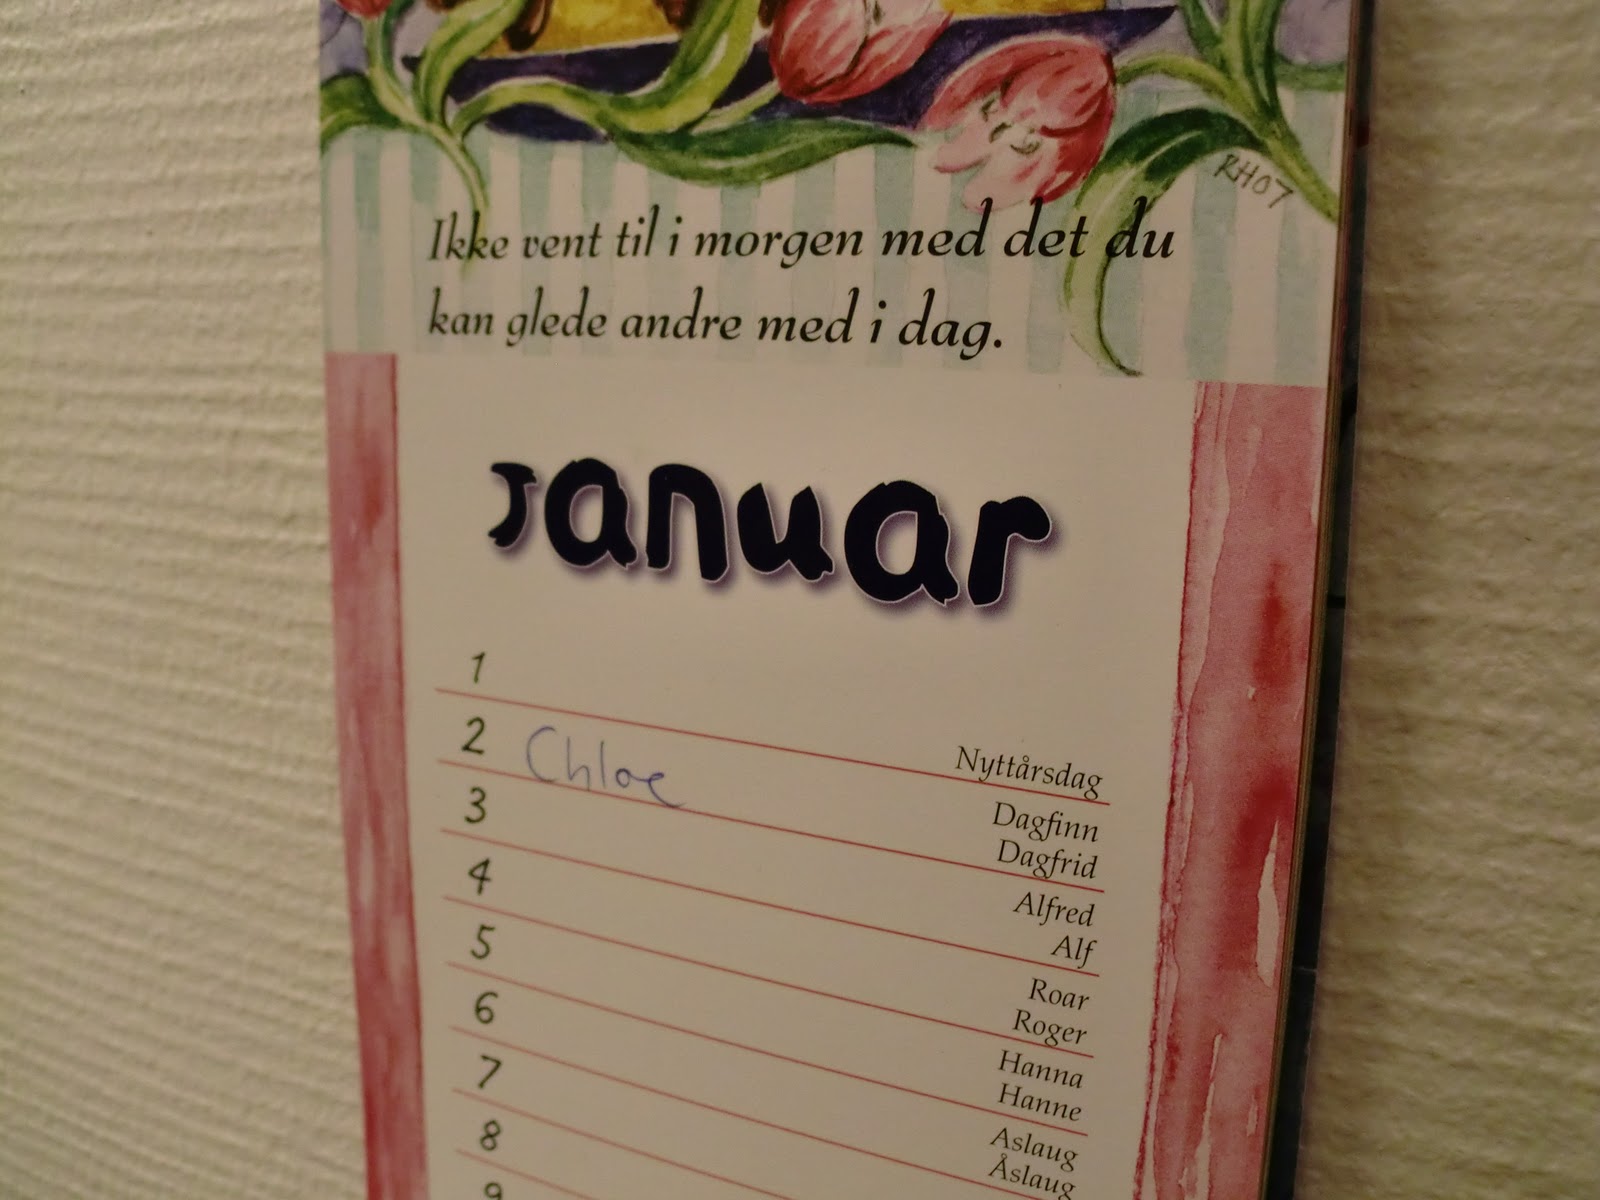 RH07
Ikke vent til i morgen med det du
kan glede andre med i dag.
Januar
1
Nyttårsdag
2 Chloe
Dagfinn
Dagfrid
3
Alfred
Alf
4
Roar
Roger
5
Hanna
Hanne
6
Aslaug
Åslaug
7
8
9